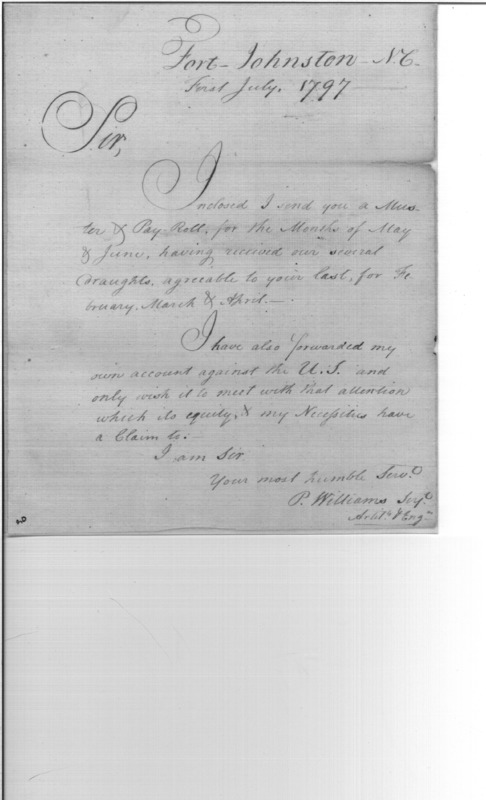 Fort-Johnston-N.C.
First July, 1797
Sir,
Inclosed I send you a Mus-
ter & Pay-Roll, for the Months of May
& June, having received our several
Draughts, agreeable to your last, for Fe
bruary, March & April.—
I have also forwarded my
own account against the U.S. and
only wish it to meet with that attention
which its equity, & my Necessities have
a Claim to.—
I am Sir
Your most humble Servt.
P. Williams Surgt.
Artils. & Engrs.